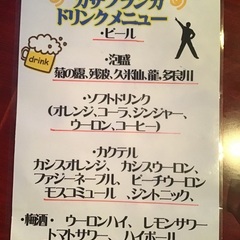 カサブランカ
ドリンクメニュー
・ビール
drink
・泡盛
菊の露、残波、久米仙、龍、多良川
・ソフトドリンク
(オレンジ、コーラ、ジンジャー、
ウーロン、コーヒー)
・カクテル
カシスオレンジ、カシスウーロン、
ファジーネーブル、ピーチウーロン
モスコミュール、ジントニック、
・梅酒・ウーロンハイ、レモンサワー
トマトサワー、ハイボール